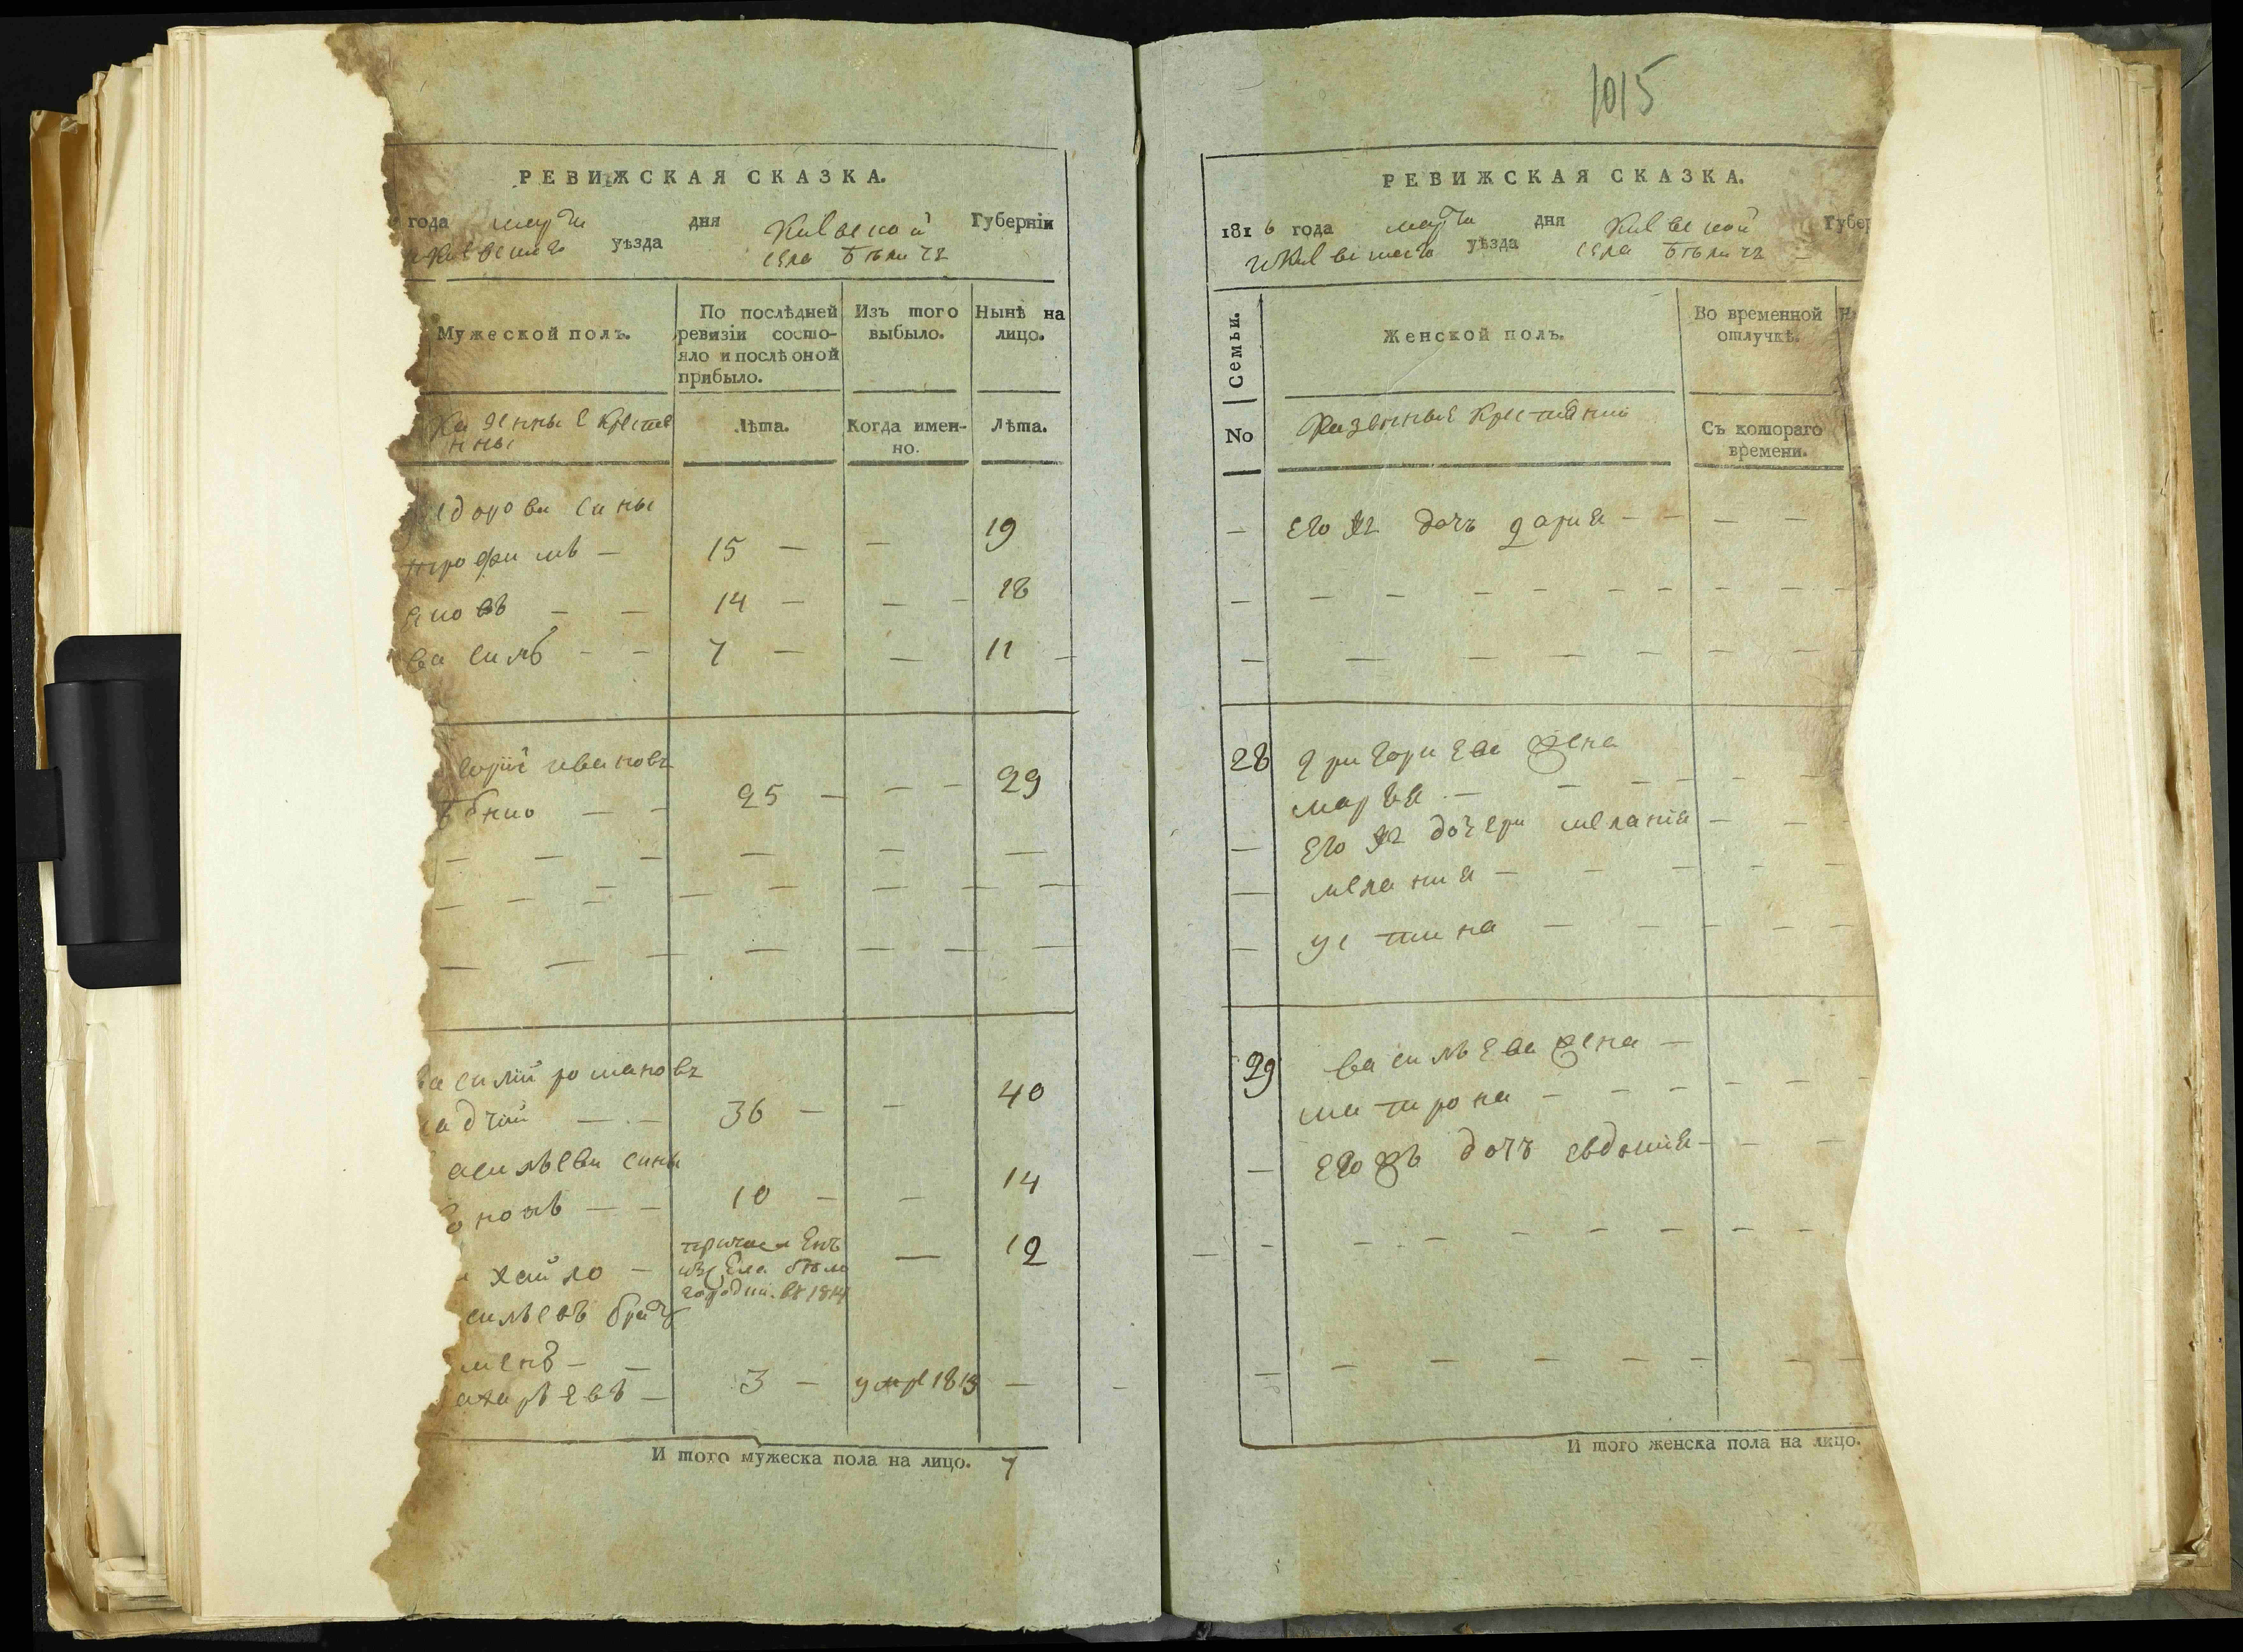 1015
РЕВИЖСКАЯ СКАЗКА.
года марта дня Киевской Губерніи
и Киевского уѣзда села Бѣличъ
Мужеской полъ.
По послѣдней ревизіи состо-
яло и послѣ оной
прибыло.
Изъ того
выбыло.
Нынѣ на
лицо.
Казенные крестья
нны
Лѣта.
Когда имен-
но.
Лѣта.
едорови сины
трофимъ — 15 — — 19
яковъ — — 14 — — 18
василь — — 7 — — 11
горій ивановъ
25 — — — 29
василій романовъ
адчій — — 36 — — 40
асильеви сины
10 — — 14
хайло —
из села бѣло
городки въ 1814
— 12
сильевъ братъ
ахарьевъ — 3 — умре 1813 —
И того мужеска пола на лицо. 7
РЕВИЖСКАЯ СКАЗКА.
1816 года марта дня Киевской Губер
и Киевского уѣзда села Бѣличъ —
Семьи.
Женской полъ.
Во временной
отлучкѣ.
№
Казенные крестьяни
Съ котораго
времени.
— его жъ дочъ дария — — — —
28 григориева жена
мария —
— его жъ дочери мелания — —
— мелания —
— устина —
29 василъева жена —
матрона —
— его жъ дочъ евдокия — — —
И того женска пола на лицо.